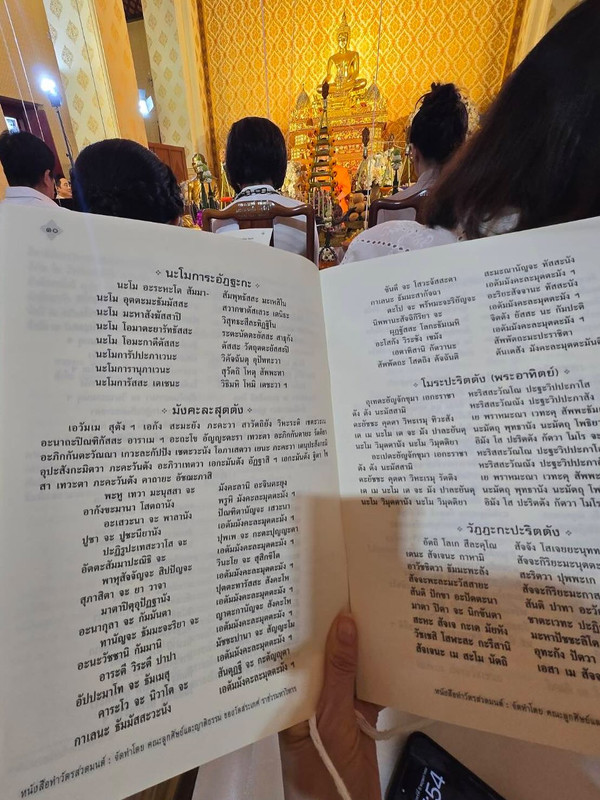 ๑๐
นะโมการะอัฏฐะกะ
นะโม อะระหะโต สัมมา- สัมพุทธัสสะ มะเหสิโน
นะโม อุตตะมะธัมมัสสะ สวากขาตัสเสวะ เตนิธะ
นะโม มะหาสังฆัสสาปิ วิสุทธะสีละทิฏฐิโน
นะโม โอมาตยารัทธัสสะ ระตะนัตตะยัสสะ สาธุกัง
นะโม โอมะกาตีตัสสะ ตัสสะ วัตถุตตะยัสสะปิ
นะโมการัปปะภาเวนะ วิคัจฉันตุ อุปัททะวา
นะโมการานุภาเวนะ สุวัตถิ โหตุ สัพพะทา
นะโมการัสสะ เตเชนะ วิธิมหิ โหมิ เตชะวา ฯ
มังคะละสุตตัง
เอวัมเม สุตัง ฯ เอกัง สะมะยัง ภะคะวา สาวัตถิยัง วิหะระติ เชตะวะเน
อะนาถะปิณฑิกัสสะ อาราเม ฯ อะถะโข อัญญะตะรา เทวะตา อะภิกกันตายะ รัตติยา
อะภิกกันตะวัณณา เกวะละกัปปัง เชตะวะนัง โอภาเสตวา เยนะ ภะคะวา เตนุปะสังกะมิ
อุปะสังกะมิตวา ภะคะวันตัง อะภิวาเทตวา เอกะมันตัง อัฏฐาสิ ฯ เอกะมันตัง ฐิตา โข
สา เทวะตา ภะคะวันตัง คาถายะ อัชฌะภาสิ
พะหู เทวา มะนุสสา จะ มังคะลานิ อะจินตะยุง
อากังขะมานา โสตถานัง พรูหิ มังคะละมุตตะมัง ฯ
อะเสวะนา จะ พาลานัง ปัณฑิตานัญจะ เสวะนา
ปูชา จะ ปูชะนียานัง เอตัมมังคะละมุตตะมัง ฯ
ปะฏิรูปะเทสะวาโส จะ ปุพเพ จะ กะตะปุญญะตา
อัตตะสัมมาปะณิธิ จะ เอตัมมังคะละมุตตะมัง ฯ
พาหุสัจจัญจะ สิปปัญจะ วินะโย จะ สุสิกขิโต
สุภาสิตา จะ ยา วาจา เอตัมมังคะละมุตตะมัง ฯ
มาตาปิตุอุปัฏฐานัง ปุตตะทารัสสะ สังคะโห
อะนากุลา จะ กัมมันตา เอตัมมังคะละมุตตะมัง ฯ
ทานัญจะ ธัมมะจะริยา จะ ญาตะกานัญจะ สังคะโห
อะนะวัชชานิ กัมมานิ เอตัมมังคะละมุตตะมัง ฯ
อาระตี วิระตี ปาปา มัชชะปานา จะ สัญญะโม
อัปปะมาโท จะ ธัมเมสุ เอตัมมังคะละมุตตะมัง ฯ
คาระโว จะ นิวาโต จะ สันตุฏฐี จะ กะตัญญุตา
กาเลนะ ธัมมัสสะวะนัง เอตัมมังคะละมุตตะมัง ฯ
หนังสือทำวัตรสวดมนต์ : จัดทำโดย คณะลูกศิษย์และญาติธรรม ของวัดสระเกศ ราชวรมหาวิหาร
ขันตี จะ โสวะจัสสะตา สะมะณานัญจะ ทัสสะนัง
กาเลนะ ธัมมะสากัจฉา เอตัมมังคะละมุตตะมัง ฯ
ตะโป จะ พรัหมะจะริยัญจะ อะริยะสัจจานะ ทัสสะนัง
นิพพานะสัจฉิกิริยา จะ เอตัมมังคะละมุตตะมัง ฯ
ผุฏฐัสสะ โลกะธัมเมหิ จิตตัง ยัสสะ นะ กัมปะติ
อะโสกัง วิระชัง เขมัง เอตัมมังคะละมุตตะมัง ฯ
เอตาทิสานิ กัตวานะ สัพพัตถะมะปะราชิตา
สัพพัตถะ โสตถิง คัจฉันติ ตันเตสัง มังคะละมุตตะมันติ
โมระปะริตตัง (พระอาทิตย์)
อุเทตะยัญจักขุมา เอกะราชา หะริสสะวัณโณ ปะฐะวิปปะภาโส
ตัง ตัง นะมัสสามิ หะริสสะวัณณัง ปะฐะวิปปะภาสัง
ตะยัชชะ คุตตา วิหะเรมุ ทิวะสัง เย พราหมะณา เวทะคุ สัพพะธัมเม
เต เม นะโม เต จะ มัง ปาละยันตุ นะมัตถุ พุทธานัง นะมัตถุ โพธิยา
นะโม วิมุตตานัง นะโม วิมุตติยา อิมัง โส ปะริตตัง กัตวา โมโร จะระติ
อะเปตะยัญจักขุมา เอกะราชา หะริสสะวัณโณ ปะฐะวิปปะภาโส
ตัง ตัง นะมัสสามิ หะริสสะวัณณัง ปะฐะวิปปะภาสัง
ตะยัชชะ คุตตา วิหะเรมุ รัตติง เย พราหมะณา เวทะคุ
เต เม นะโม เต จะ มัง ปาละยันตุ นะมัตถุ พุทธานัง นะมัตถุ
นะโม วิมุตตานัง นะโม วิมุตติยา อิมัง โส ปะริตตัง กัตวา โมโร
วัฏฏะกะปะริตตัง
อัตถิ โลเก สีละคุโณ สัจจัง โสเจยยะนุททะ
เตนะ สัจเจนะ กาหามิ สัจจะกิริยะมะนุตตะ
อาวัชชิตวา ธัมมะพะลัง สะริตวา ปุพพะเก
สัจจะพะละมะวัสสายะ สัจจะกิริยะมะกาส
สันติ ปักขา อะปัตตะนา สันติ ปาทา อะวัญ
มาตา ปิตา จะ นิกขันตา ชาตะเวทะ ปะฏิ
สะหะ สัจเจ กะเต มัยหัง มะหาปัชชะลิโต
วัชเชสิ โสฬะสะ กะรีสานิ อุทะกัง ปัตวา
สัจเจนะ เม สะโม นัตถิ เอสา เม สัจ
หนังสือทำวัตรสวดมนต์ : จัดทำโดย คณะลูกศิษย์และญาติธรรม
54